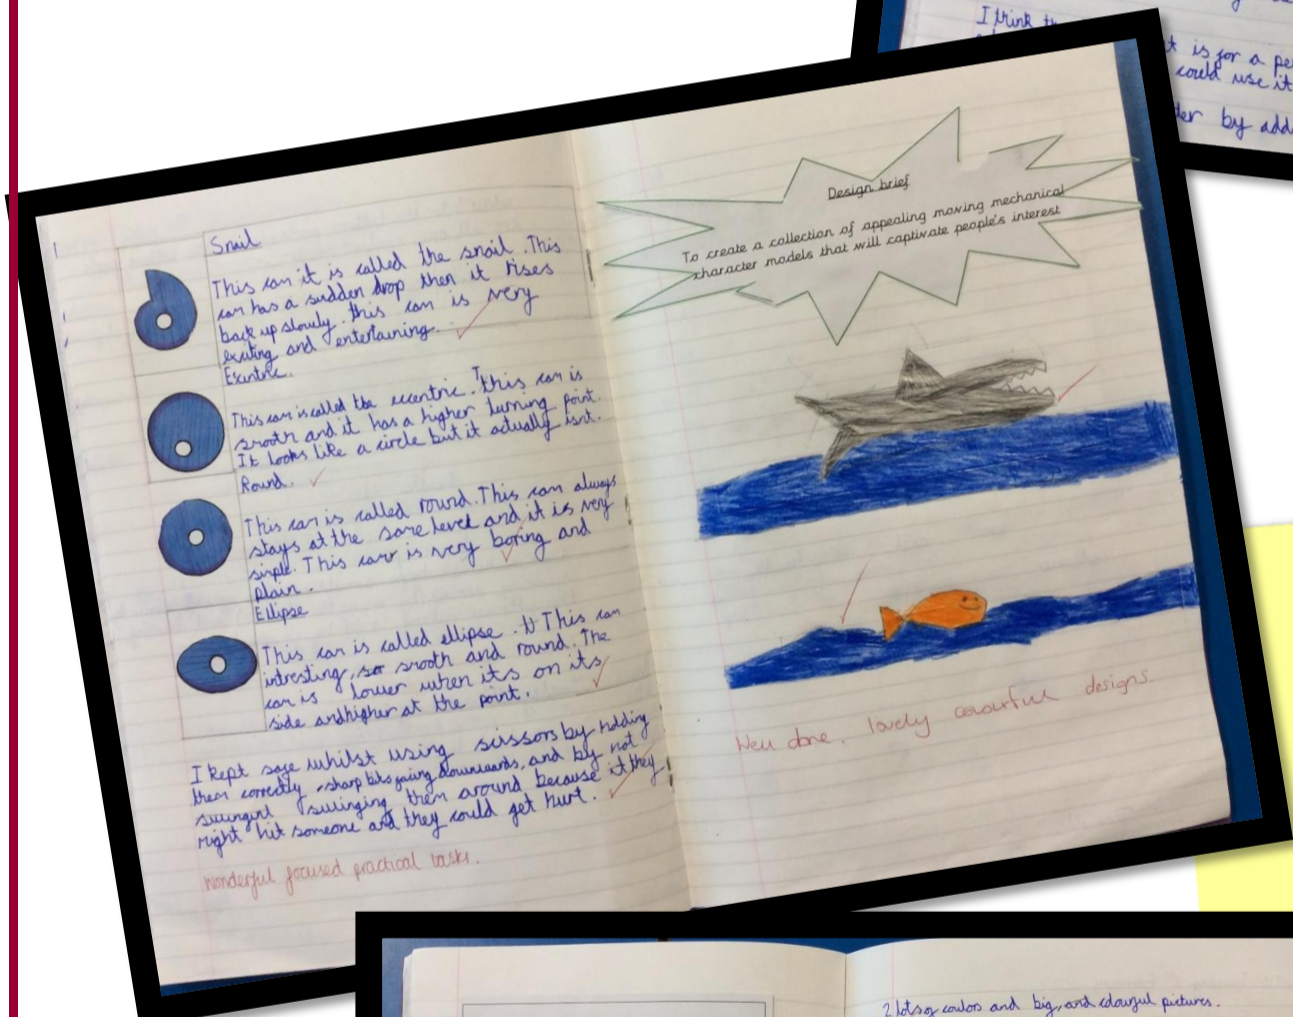 Snail
This cam it is called the snail. This
cam has a sudden drop then it rises
back up slowly. this cam is very
exiting and entertaining.
Esentric.
This cam is called the eccentric. This cam is
smooth and it has a higher turning point.
It looks like a circle but it actually isnt.
Round.
This cam is called round. This cam always
stays at the same level and it is very
simple. This cam is very boring and
plain.
Ellipse
This cam is called ellipse. This cam
intresting, smooth and round. The
cam is lower when it's on its
side and higher at the point.
I kept safe whilst using scissors by holding
them correctly - sharp bits facing downwards, and by not
swinging them around because it they
might hit someone and they could get hurt.
Wonderful focused practical tasks.
Design brief
To create a collection of appealing moving mechanical
character models that will captivate people's interest
Well done, lovely colourful designs.
I think
is for a
could use it
by add
2 lots of coulors and big, and colourful pictures.